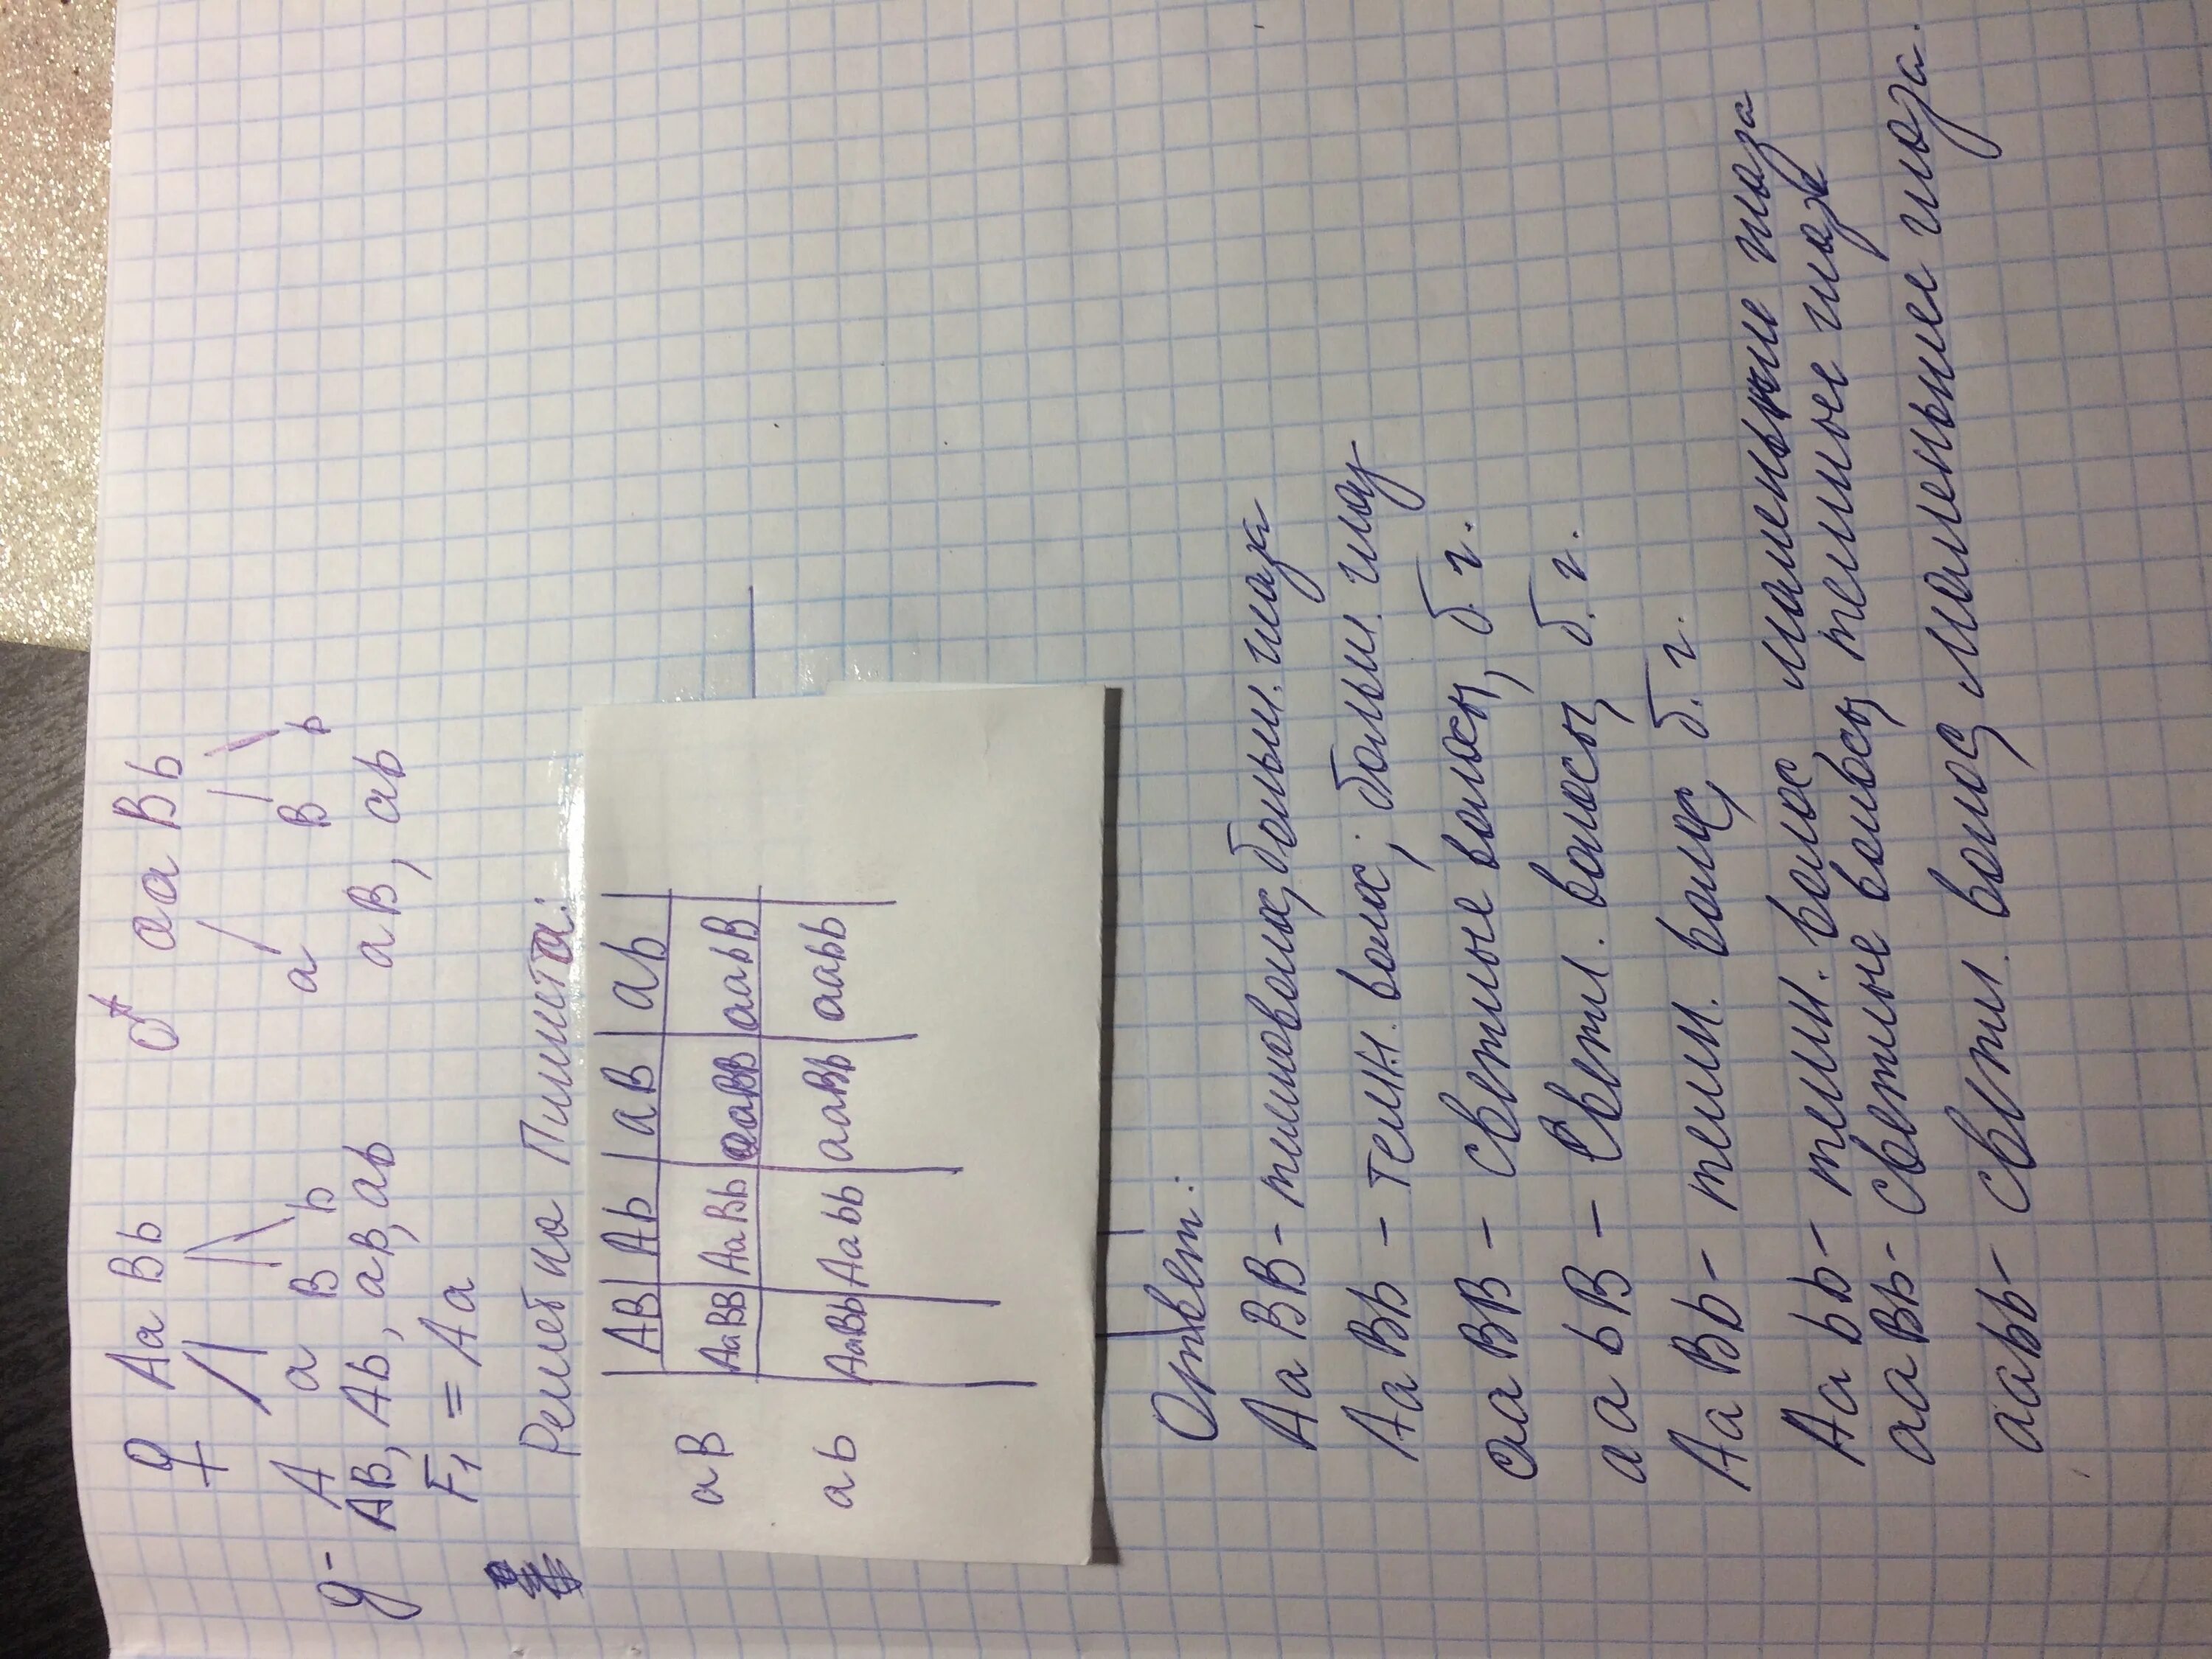 ♀ Aa Bb ♂ aa Bb
A a B b a B b
g- AB, Ab, aB, ab aB, ab
F1 = Aa
Решетка Пиннета:
AB Ab aB ab
aB AaBB AaBb aaBB aabB
ab AaBb Aabb aaBb aabb
Ответ:
AaBB - темн волос, больш. глаза
AaBb - темн. волос; больш. глаз
aaBB - светлые волосы, б. г.
aabB - Светл. волосы б. г.
AaBb - темн. волос, б. г.
Aabb - темн. волос маленькие глаза
aaBb - светлые волосы темные глаза
aabb - светл. волос, маленькие глаза.